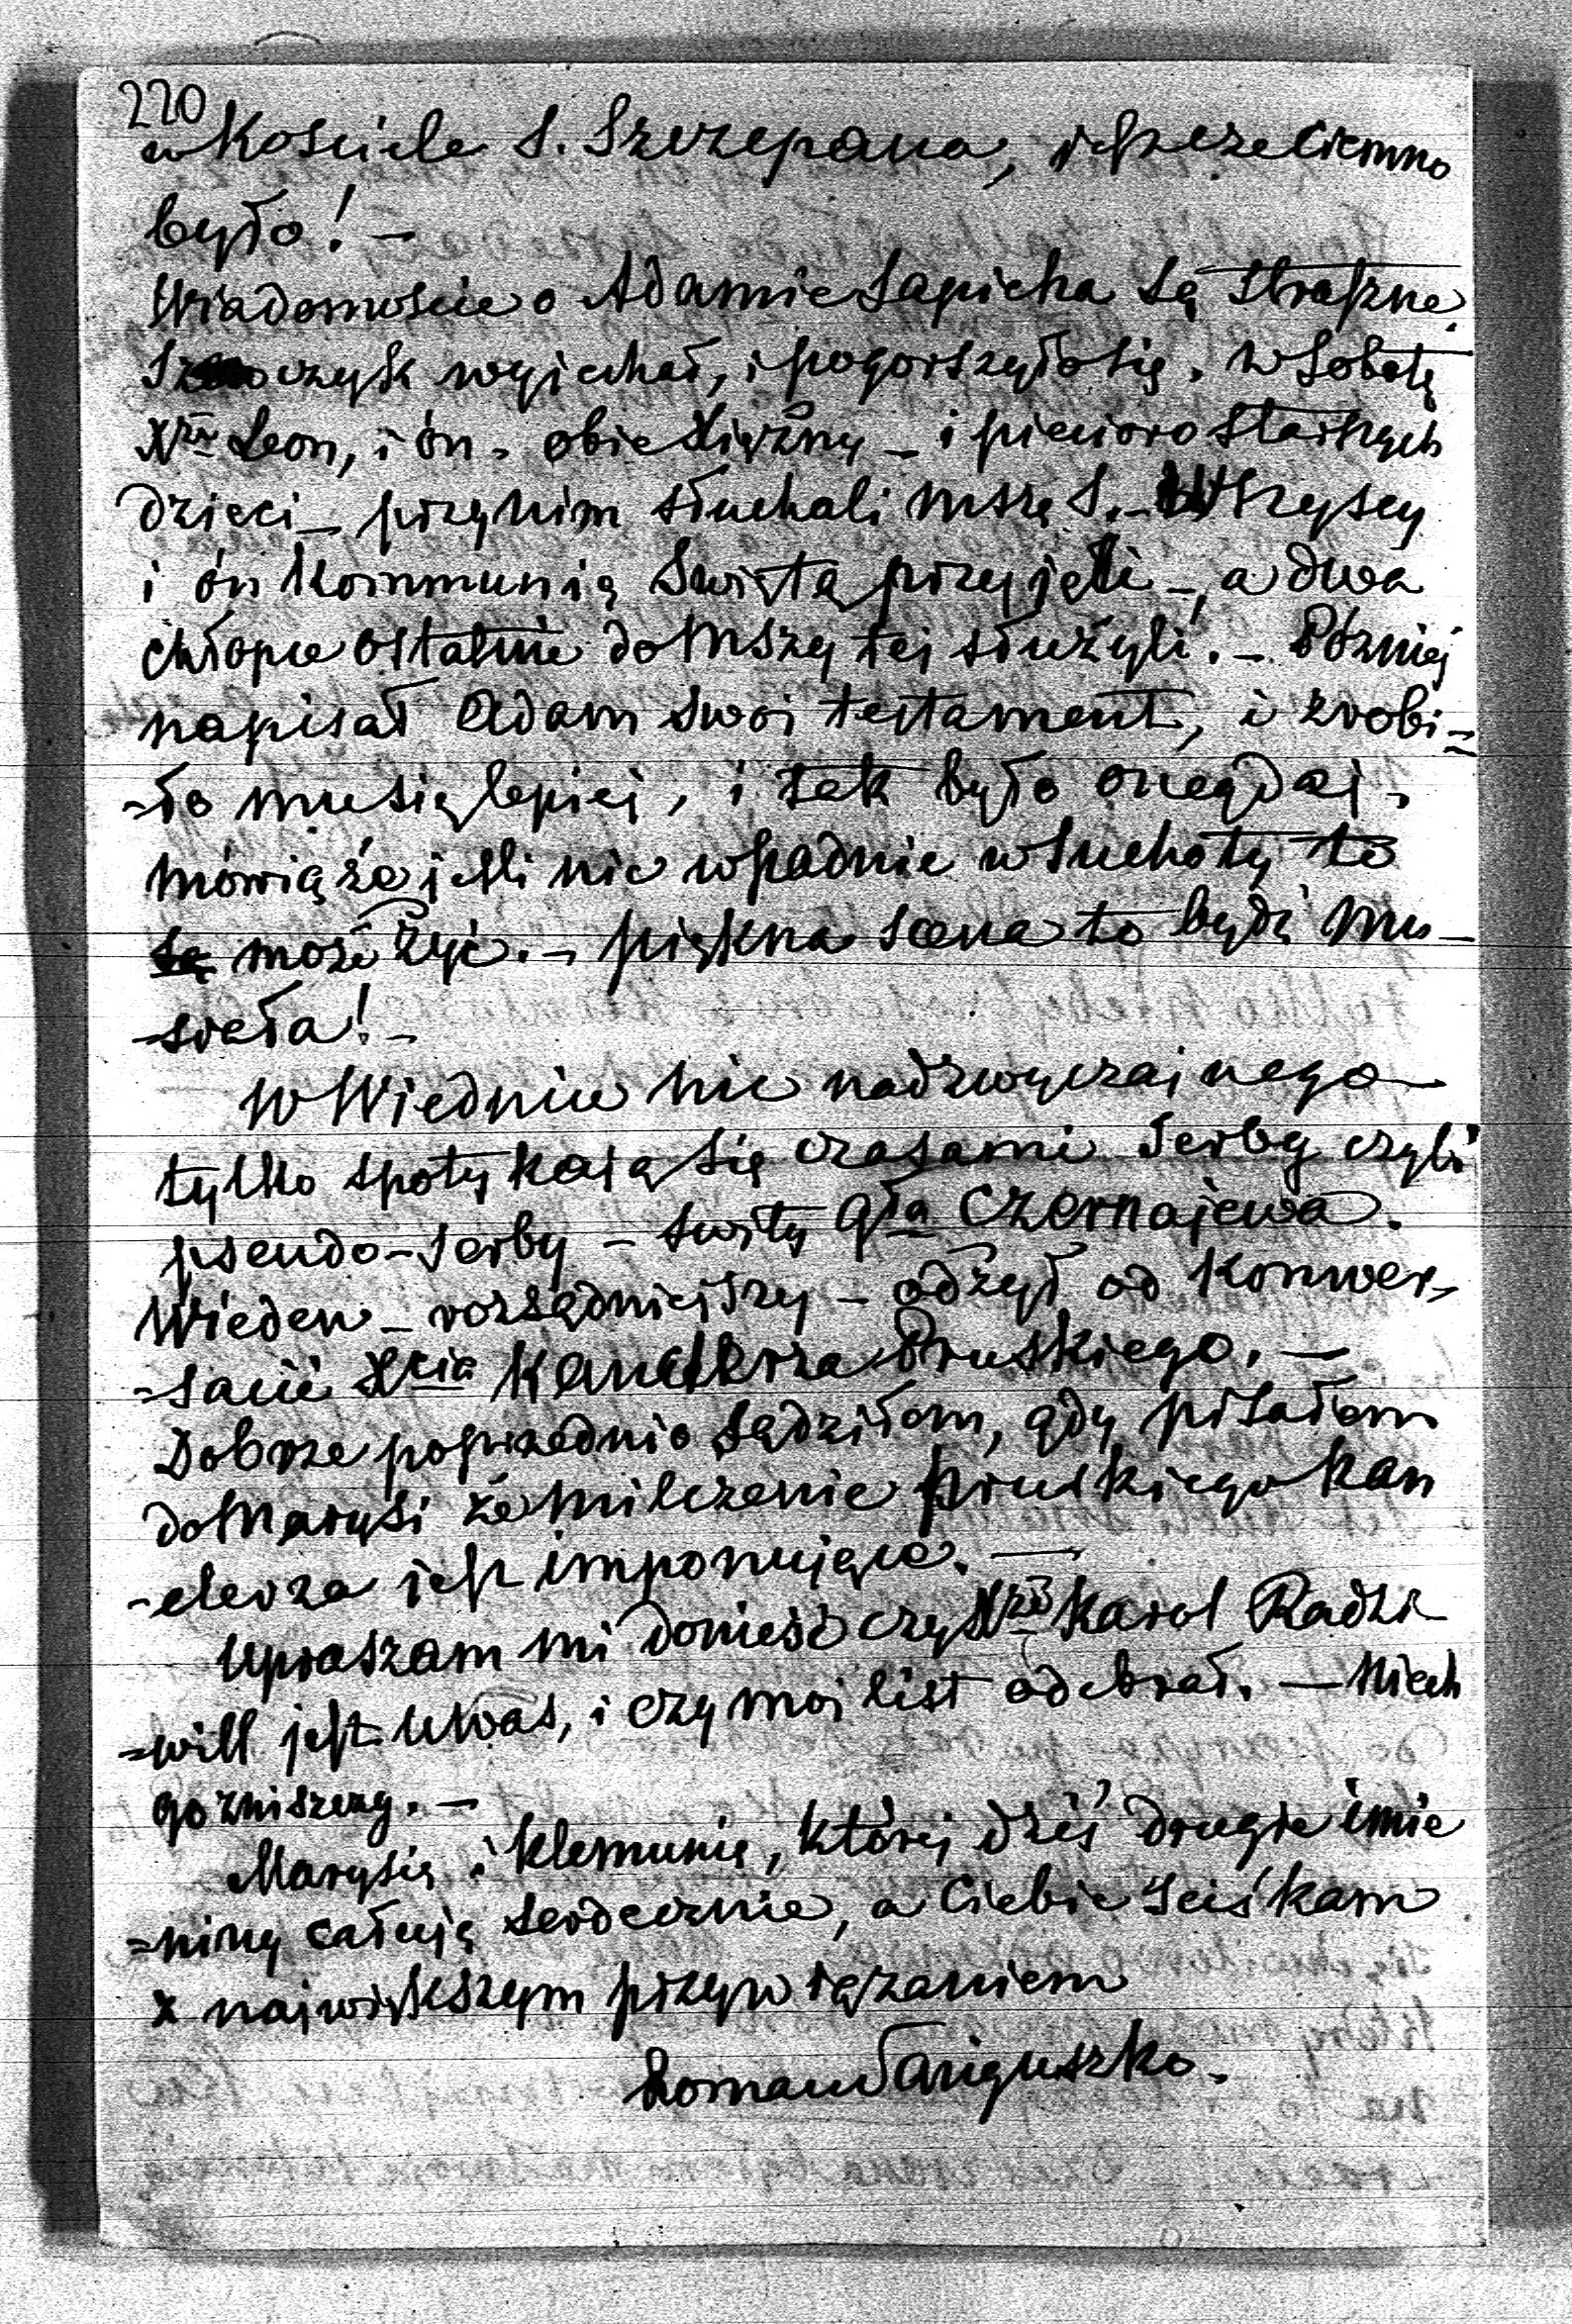 220
w Kosciele S. Szczepana, jeszcze ciemno
było! –
Wiadomoscie o Adamie Sapieha są straszne.
wyjechał, i pogorszyło się. W Sobotę
Xże Leon, i ón. obie Xiężny – i piecioro starszych
dzieci – przy nim słuchali Mszę S. – Wszyscy
i ón Kommunią Swiętą przyjęli –, a dwa
chłopce ostatnie do Mszy tej służyli. – Pózniej
napisał Adam swoj testament, i zrobi=
-ło mu się lepiej, i tak było onegdaj,
mówią że jesli nie wpadnie w suchoty to
są może żyć. – piękna scena to bydź mu-
-siała! –
W Wiedniu nic nadzwyczajnego –
tylko spotykają się czasami Serby czyli
pseudo-Serby – swity Gła Czernajewa.
Wieden – rozsądniejszy – odżył od Konwer-
=sacii Xcia Kanclerza Pruskiego. –
Dobrze poprzednio sądziłem, gdy pisałem
do Marysi że milczenie pruskiego Kan
-clerza jest imponujące. –
Upraszam mi doniesć czy Xże Karol Radzi-
=will jest u Was, i czy moj list odebrał. – Niech
go zniszczy. –
Marysię i Klemunię, której dziś drugie imie
=niny całuję serdecznie, a Ciebie sciskam
z największym przywiązaniem
Roman Sanguszko.